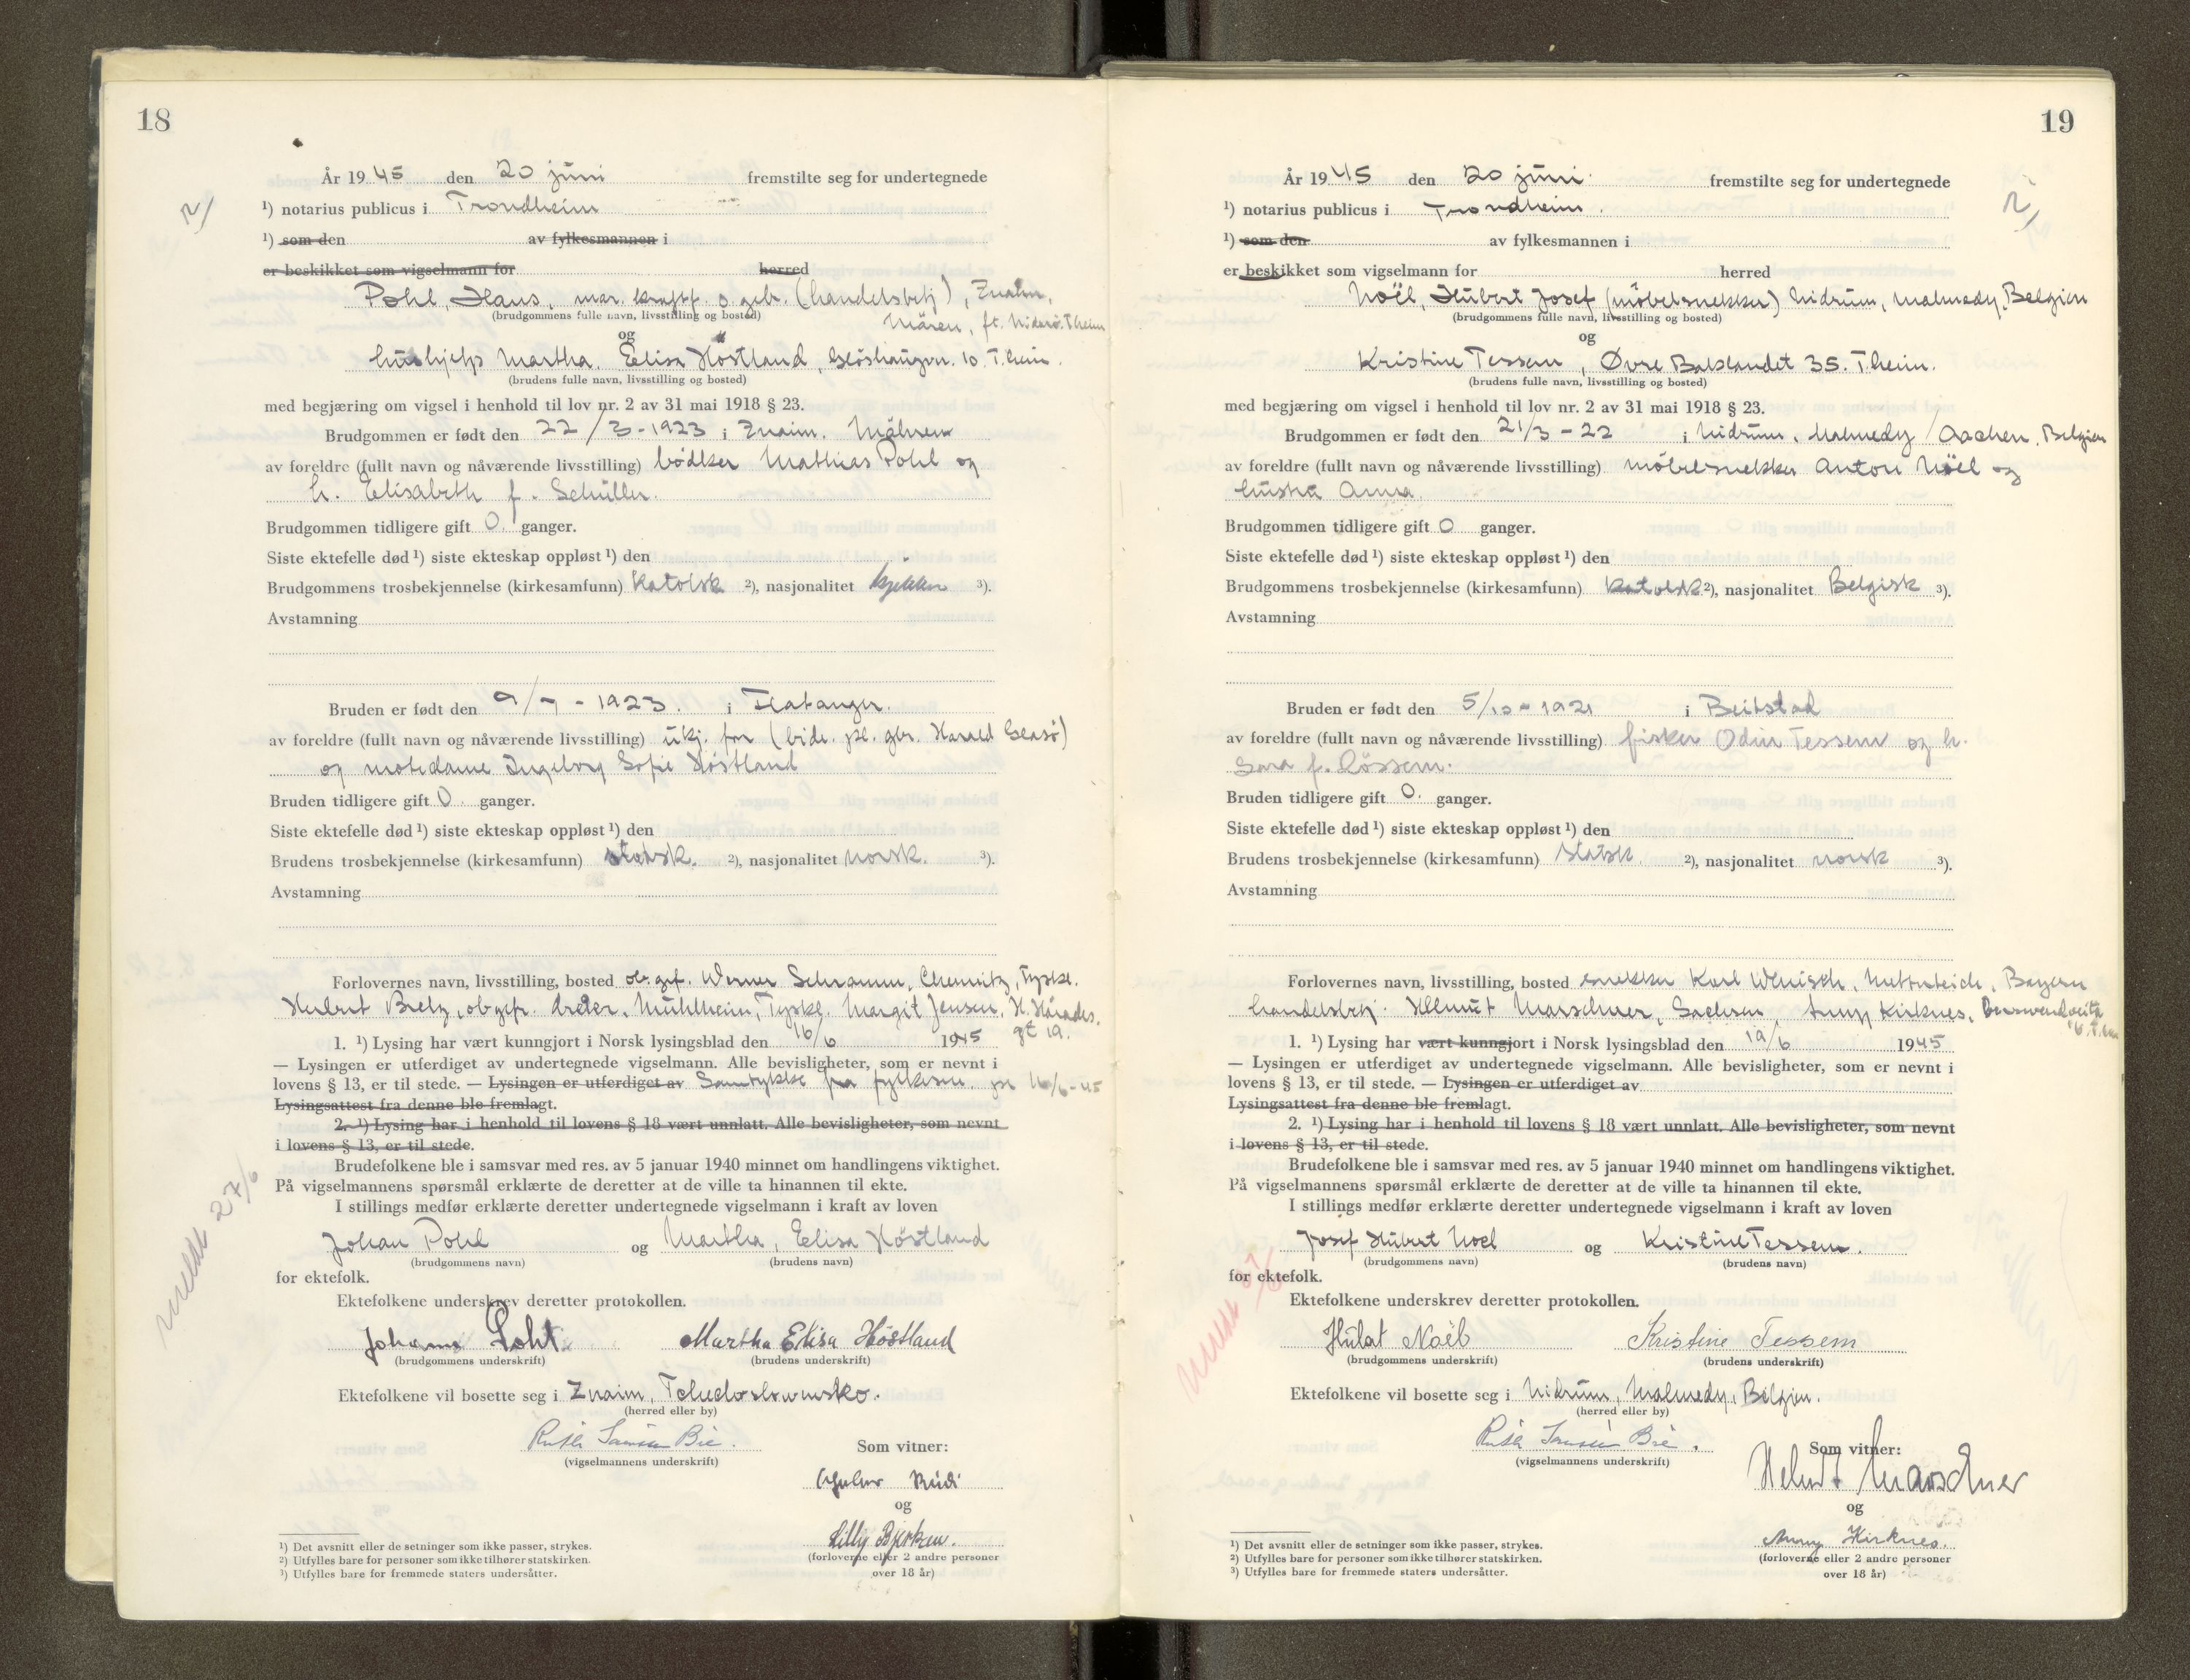 18
År 1945 den 20 juni fremstilte seg for undertegnede
2/
¹) notarius publicus i Trondheim
¹) som den av fylkesmannen i
er beskikket som vigselmann for herred
Pohl, Hans, mar. o geb. (handelsbetj), Znaim,
(brudgommens fulle navn, livsstilling og bosted)
Mären, ft. Nidarø. T.heim
og
hushjelp Martha Elisa Höstland, Gløshaugvn. 10 T.heim.
(brudens fulle navn, livsstilling og bosted)
med begjæring om vigsel i henhold til lov nr. 2 av 31 mai 1918 § 23.
Brudgommen er født den 22/3-1923 i Znaim. Mähren
av foreldre (fullt navn og nåværende livsstilling) bødker Mathias Pohl og
h. Elisabeth f. Schüller.
Brudgommen tidligere gift 0. ganger.
Siste ektefelle død ¹) siste ekteskap oppløst ¹) den
Brudgommens trosbekjennelse (kirkesamfunn) Katolsk ²), nasjonalitet ³).
Avstamning
Bruden er født den 9/7-1923. i Flatanger.
av foreldre (fullt navn og nåværende livsstilling) ukj. far (Harald Glasø)
og motedame Ingeborg Sofie Höstland
Bruden tidligere gift 0. ganger.
Siste ektefelle død ¹) siste ekteskap oppløst ¹) den
Brudens trosbekjennelse (kirkesamfunn) statsk. ²), nasjonalitet norsk. ³).
Avstamning
Forlovernes navn, livsstilling, bosted ob.gef. Werner Schramm, Chemnitz, Tyskl.
Herbert Bretz, obgefr. dreier, Mühlheim, Tyskl. Margit Jensen, H. Hårades.
gt 19.
1. ¹) Lysing har vært kunngjort i Norsk lysingsblad den 16/6 1945
— Lysingen er utferdiget av undertegnede vigselmann. Alle bevisligheter, som er nevnt i
lovens § 13, er til stede. — Lysingen er utferdiget av Samtykke fra fylkesm. 16/6-45
Lysingsattest fra denne ble fremlagt.
2. ¹) Lysing har i henhold til lovens § 18 vært unnlatt. Alle bevisligheter, som nevnt
i lovens § 13, er til stede.
Brudefolkene ble i samsvar med res. av 5 januar 1940 minnet om handlingens viktighet.
På vigselmannens spørsmål erklærte de deretter at de ville ta hinannen til ekte.
I stillings medfør erklærte deretter undertegnede vigselmann i kraft av loven
Johan Pohl og Martha, Elisa Höstland
(brudgommens navn) (brudens navn)
for ektefolk.
meldt 27/6
Ektefolkene underskrev deretter protokollen.
Johann Pohl Martha Elisa Höstland
(brudgommens underskrift) (brudens underskrift)
Ektefolkene vil bosette seg i Znaim,
(herred eller by)
Ruth Bie. Som vitner:
(vigselmannens underskrift)
og
Lilly Bjerkan.
(forloverne eller 2 andre personer
over 18 år)
¹) Det avsnitt eller de setninger som ikke passer, strykes.
²) Utfylles bare for personer som ikke tilhører statskirken.
³) Utfylles bare for fremmede staters undersåtter.
19
År 1945 den 20 juni. fremstilte seg for undertegnede
2/
¹) notarius publicus i Trondheim.
¹) som den av fylkesmannen i
er beskikket som vigselmann for herred
Noël, Hubert Josef (møbelsnekker) Nidrum, Malmedy, Belgien
(brudgommens fulle navn, livsstilling og bosted)
og
Kristine Tessem, Øvre Baklandet 35. T.heim.
(brudens fulle navn, livsstilling og bosted)
med begjæring om vigsel i henhold til lov nr. 2 av 31 mai 1918 § 23.
Brudgommen er født den 21/3-22 i Nidrum, Malmedy/Aachen, Belgien
av foreldre (fullt navn og nåværende livsstilling) møbelsnekker Anton Nöel og
hustru Anna
Brudgommen tidligere gift 0 ganger.
Siste ektefelle død ¹) siste ekteskap oppløst ¹) den
Brudgommens trosbekjennelse (kirkesamfunn) katolsk ²), nasjonalitet Belgisk ³).
Avstamning
Bruden er født den 5/10-1921 i Beitstad
av foreldre (fullt navn og nåværende livsstilling) fisker Odin Tessem og h.
Sara f. Løssem.
Bruden tidligere gift 0. ganger.
Siste ektefelle død ¹) siste ekteskap oppløst ¹) den
Brudens trosbekjennelse (kirkesamfunn) statsk. ²), nasjonalitet norsk ³).
Avstamning
Forlovernes navn, livsstilling, bosted snekker Karl Wenisch, Mitterteich, Bayern
handelsbetj. Helmut Marschner, Sachsen, Anny Kirknes,
1. ¹) Lysing har vært kunngjort i Norsk lysingsblad den 19/6 1945
— Lysingen er utferdiget av undertegnede vigselmann. Alle bevisligheter, som er nevnt i
lovens § 13, er til stede. — Lysingen er utferdiget av
Lysingsattest fra denne ble fremlagt.
2. ¹) Lysing har i henhold til lovens § 18 vært unnlatt. Alle bevisligheter, som nevnt
i lovens § 13, er til stede.
Brudefolkene ble i samsvar med res. av 5 januar 1940 minnet om handlingens viktighet.
På vigselmannens spørsmål erklærte de deretter at de ville ta hinannen til ekte.
I stillings medfør erklærte deretter undertegnede vigselmann i kraft av loven
Josef Hubert Noel og Kristine Tessem.
(brudgommens navn) (brudens navn)
for ektefolk.
meldt 27/6
Ektefolkene underskrev deretter protokollen.
Hubat Noël Kristine Tessem
(brudgommens underskrift) (brudens underskrift)
Ektefolkene vil bosette seg i Nidrum, Malmedy, Belgien.
(herred eller by)
Ruth Bie. Som vitner:
(vigselmannens underskrift)
Helmut Marschner
og
Anny Kirknes.
(forloverne eller 2 andre personer
over 18 år)
¹) Det avsnitt eller de setninger som ikke passer, strykes.
²) Utfylles bare for personer som ikke tilhører statskirken.
³) Utfylles bare for fremmede staters undersåtter.